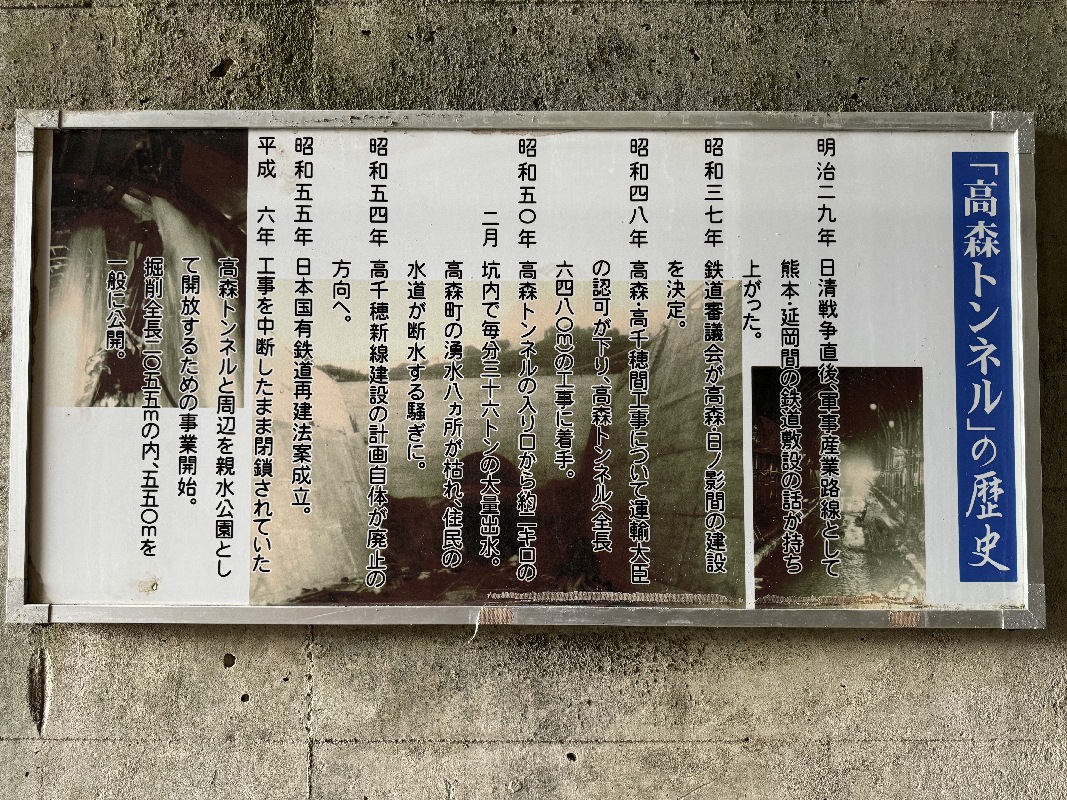 「高森トンネル」の歴史
明治二九年　日清戦争直後、軍事産業路線として
熊本・延岡間の鉄道敷設の話が持ち
上がった。
昭和三七年　鉄道審議会が高森・日ノ影間の建設
を決定。
昭和四八年　高森・高千穂間工事について運輸大臣
の認可が下り、高森トンネル(全長
六四八〇m)の工事に着手。
昭和五〇年　高森トンネルの入り口から約二キロの
二月　坑内で毎分三十六トンの大量出水。
高森町の湧水八ヵ所が枯れ、住民の
水道が断水する騒ぎに。
昭和五四年　高千穂新線建設の計画自体が廃止の
方向へ。
昭和五五年　日本国有鉄道再建法案成立。
平成　六年　工事を中断したまま閉鎖されていた
高森トンネルと周辺を親水公園とし
て開放するための事業開始。
掘削全長二〇五五mの内、五五〇mを
一般に公開。